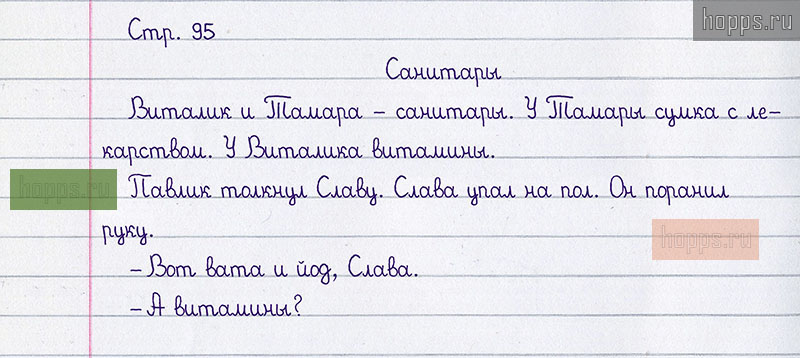 hopps.ru
Стр. 95
Санитары
Виталик и Тамара – санитары. У Тамары сумка с ле-
карством. У Виталика витамины.
hopps.ru
Павлик толкнул Славу. Слава упал на пол. Он поранил
руку.
hopps.ru
– Вот вата и йод, Слава.
– А витамины?